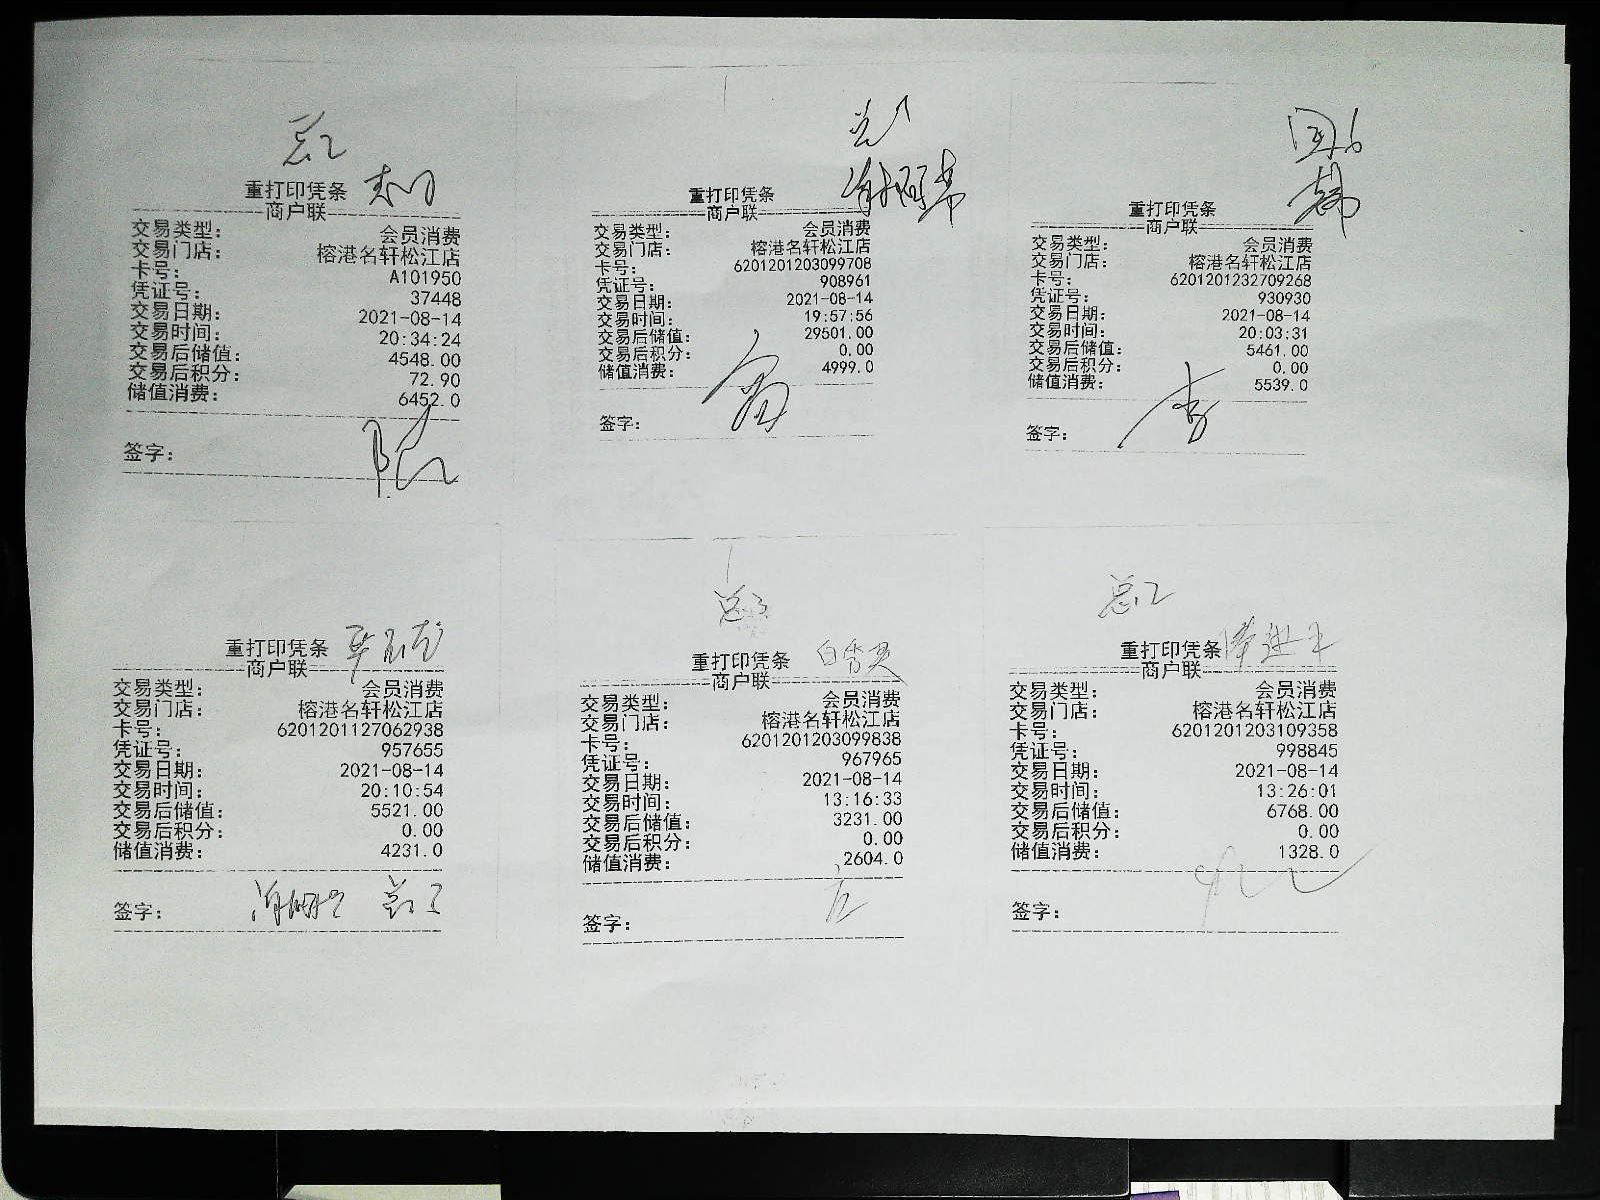 重打印凭条
商户联
交易类型： 会员消费
交易门店： 榕港名轩松江店
卡号： A101950
凭证号： 37448
交易日期： 2021-08-14
交易时间： 20:34:24
交易后储值： 4548.00
交易后积分： 72.90
储值消费： 6452.0
签字：
重打印凭条
商户联
交易类型： 会员消费
交易门店： 榕港名轩松江店
卡号： 6201201203099708
凭证号： 908961
交易日期： 2021-08-14
交易时间： 19:57:56
交易后储值： 29501.00
交易后积分： 0.00
储值消费： 4999.0
签字：
重打印凭条
商户联
交易类型： 会员消费
交易门店： 榕港名轩松江店
卡号： 6201201232709268
凭证号： 930930
交易日期： 2021-08-14
交易时间： 20:03:31
交易后储值： 5461.00
交易后积分： 0.00
储值消费： 5539.0
签字：
重打印凭条
商户联
交易类型： 会员消费
交易门店： 榕港名轩松江店
卡号： 6201201127062938
凭证号： 957655
交易日期： 2021-08-14
交易时间： 20:10:54
交易后储值： 5521.00
交易后积分： 0.00
储值消费： 4231.0
签字：
重打印凭条
商户联
交易类型： 会员消费
交易门店： 榕港名轩松江店
卡号： 6201201203099838
凭证号： 967965
交易日期： 2021-08-14
交易时间： 13:16:33
交易后储值： 3231.00
交易后积分： 0.00
储值消费： 2604.0
签字：
重打印凭条
商户联
交易类型： 会员消费
交易门店： 榕港名轩松江店
卡号： 6201201203109358
凭证号： 998845
交易日期： 2021-08-14
交易时间： 13:26:01
交易后储值： 6768.00
交易后积分： 0.00
储值消费： 1328.0
签字：